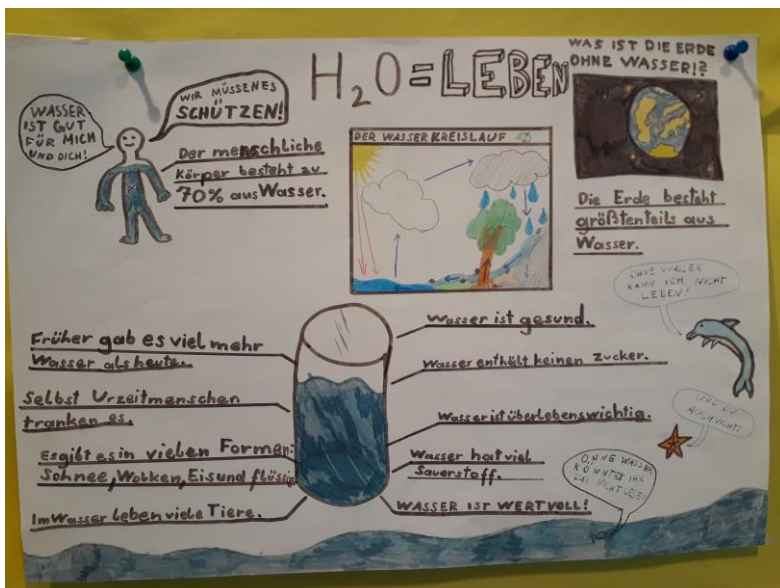 H₂O = LEBEN
WAS IST DIE ERDE
OHNE WASSER!?
WASSER
IST GUT
FÜR MICH
UND DICH!
WIR MÜSSEN ES
SCHÜTZEN!
Der menschliche
Körper besteht zu
70% aus Wasser.
DER WASSERKREISLAUF
Die Erde besteht
größtenteils aus
Wasser.
OHNE WASSER
KANN ICH NICHT
LEBEN!
Früher gab es viel mehr
Wasser als heute.
Selbst Urzeitmenschen
tranken es.
Es gibt es in vielen Formen:
Schnee, Wolken, Eis und flüssig
Im Wasser leben viele Tiere.
Wasser ist gesund.
Wasser enthält keinen Zucker.
Wasser ist überlebenswichtig.
Wasser hat viel
Sauerstoff.
WASSER IST WERTVOLL!
UND DU
AUCH NICHT!
OHNE WASSER
KÖNNTET IHR
DAS NICHT LESEN